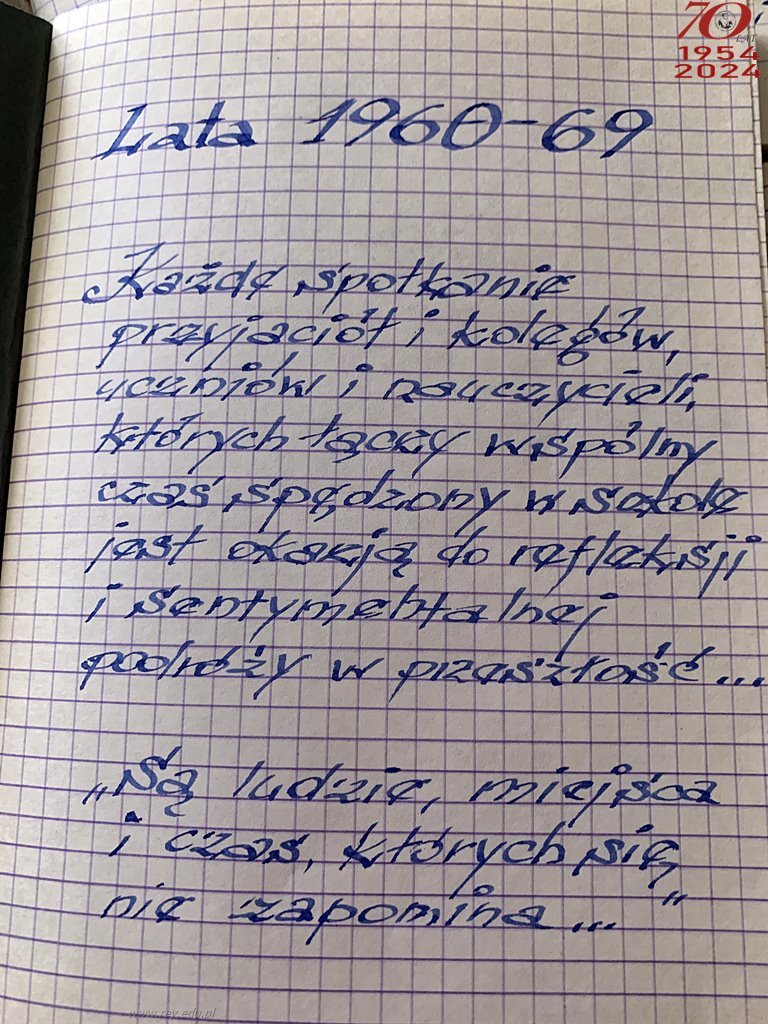 70
LAT
1954
2024
Lata 1960-69
Każde spotkanie
przyjaciół i kolegów,
uczniów i nauczycieli,
których łączy wspólny
czas spędzony w szkole
jest okazją do refleksji
i sentymentalnej
podróży w przeszłość...
„Są ludzie, miejsca
i czas, których się
nie zapomina..."
www.rey.edu.pl